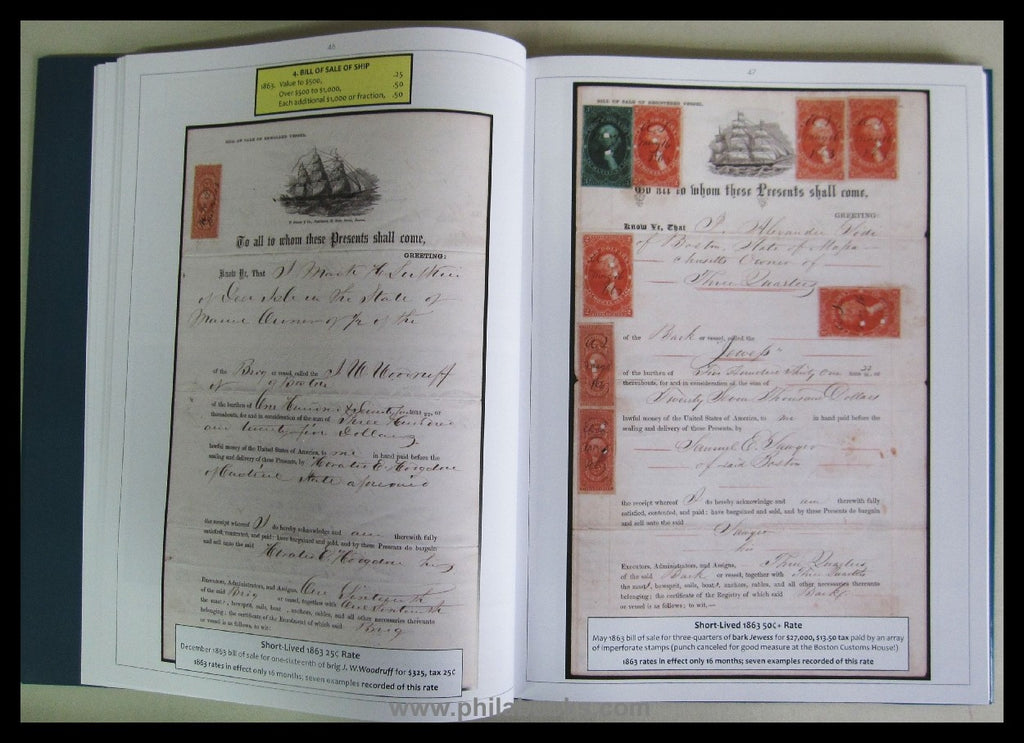 46
4. BILL OF SALE OF SHIP
1863. Value to $500, .25
Over $500 to $1,000, .50
Each additional $1,000 or fraction, .50
BILL OF SALE OF ENROLLED VESSEL.
To all to whom these Presents shall come,
GREETING:
Know Ye, That I Mark H
of Deer Isle in the State of
Maine Owner of
of the Brig or vessel, called the J W Woodruff
of Boston
of the burthen of One Hundred & Seventy
thereabouts, for and in consideration of the sum of Three Hundred
and twenty five Dollars
lawful money of the United States of America, to me in hand paid before the
sealing and delivery of these Presents, by Horatio E
of Castine State aforesaid
the receipt whereof I do hereby acknowledge and am therewith fully
satisfied, contented, and paid: have bargained and sold, and by these Presents do bargain
and sell unto the said Horatio E
Executors, Administrators, and Assigns, One Sixteenth
of the said Brig or vessel, together with One Sixteenth
the mast , bowsprit, sails, boat , anchors, cables, and all other necessaries thereunto
belonging; the certificate of the Enrolment of which said Brig
or vessel is as follows, to wit:
Short-Lived 1863 25¢ Rate
December 1863 bill of sale for one-sixteenth of brig J. W.Woodruff for $325, tax 25¢
1863 rates in effect only 16 months; seven examples recorded of this rate
47
BILL OF SALE OF REGISTERED VESSEL.
To all to whom these Presents shall come.
GREETING:
Know Ye, That I, Alexander
of Boston, State of Massa
chusetts Owner of
Three Quarters
of the Bark or vessel, called the
Jewess
of the burthen of Five Hundred Thirty One tons or
thereabouts, for and in consideration of the sum of
Twenty Seven Thousand Dollars
lawful money of the United States of America, to me in hand paid before the
sealing and delivery of these Presents, by
Samuel E. Sawyer
of said Boston
the receipt whereof I do hereby acknowledge and am therewith fully
satisfied, contented, and paid: have bargained and sold, and by these Presents do bargain
and sell unto the said
Sawyer
his
Executors, Administrators, and Assigns, Three Quarters
of the said Bark or vessel, together with Three Quarters
the mast , bowsprit, sails, boat , anchors, cables, and all other necessaries thereunto
belonging; the certificate of the Registry of which said Bark
or vessel is as follows; to wit.—
Short-Lived 1863 50¢+ Rate
May 1863 bill of sale for three-quarters of bark Jewess for $27,000, $13.50 tax paid by an array
of imperforate stamps (punch canceled for good measure at the Boston Customs House!)
1863 rates in effect only 16 months; seven examples recorded of this rate
www.philabooks.com